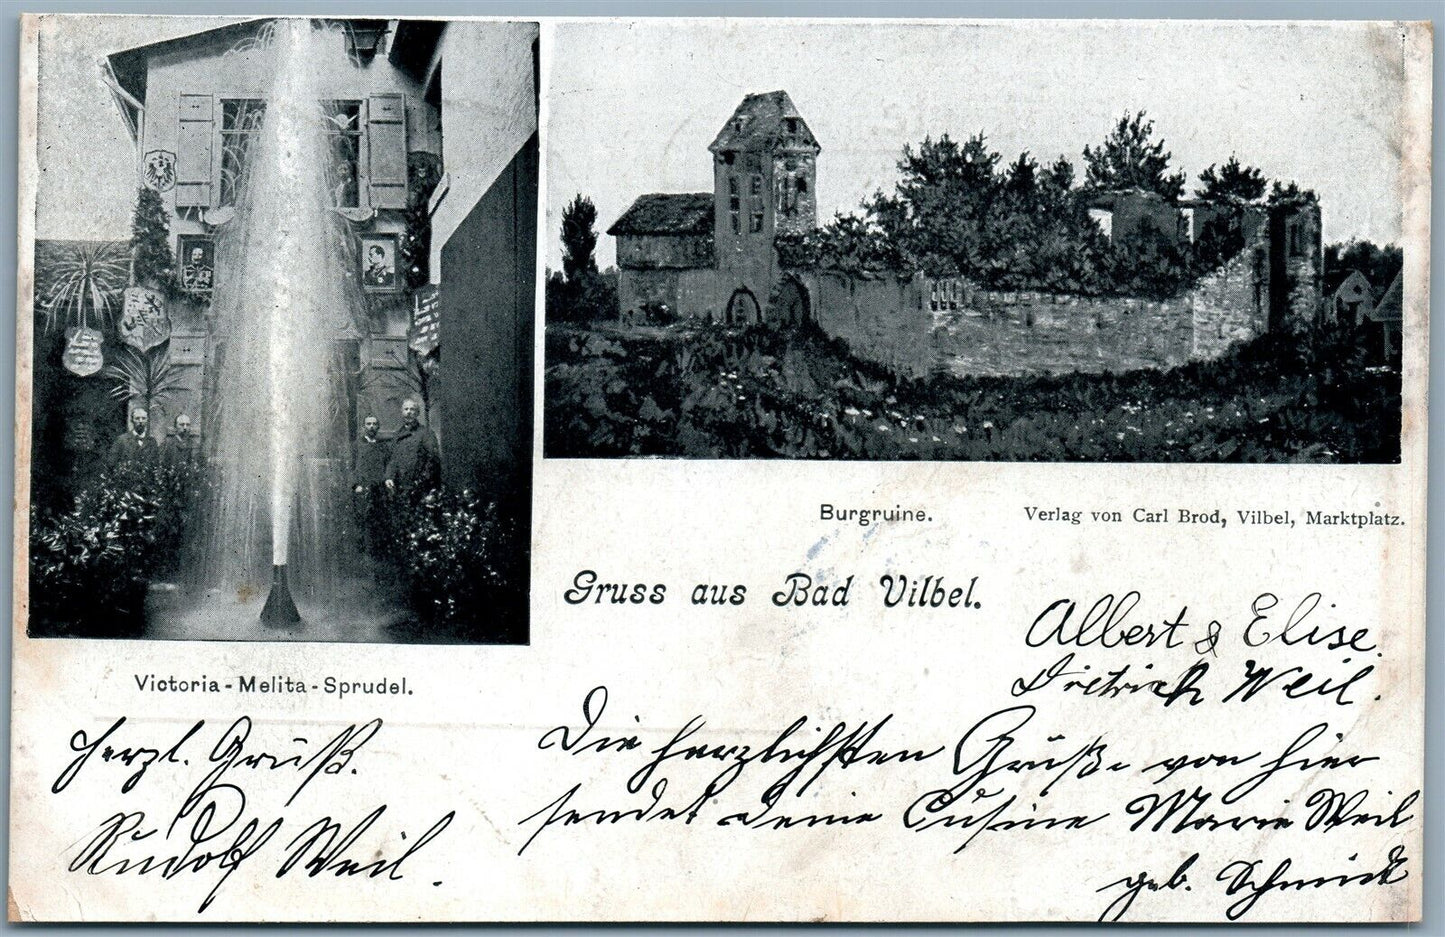 Burgruine.
Verlag von Carl Brod, Vilbel, Marktplatz.
Gruss aus Bad Vilbel.
Victoria-Melita-Sprudel.
Albert & Elise.
Dietrich Weil.
Herzl. Gruß.
Rudolf Weil.
Die herzlichsten Grüße von hier
sendet deine Cusine Marie Weil
geb. Schmidt